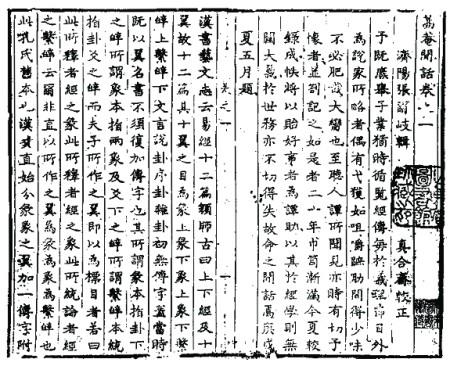 蒿菴閒話卷之一
濟陽張爾岐輯 真合齋校正
予既廢舉子業獨時循覽經傳每於義理節目外
為說家所略者偶有弋獲如咀嚼蹠肋間得少味
不必肥胾大臠也至聽人譚所聞見亦時有切予
懷者並劄記之如是者二十八年巾笥漸滿今夏較
錄成帙將以貽好事者為譚助以其於經學則無
關大義於世務亦不切得失故命之閒話焉庚戌
夏五月題
卷之一
一
漢書藝文志云易經十二篇顏師古曰上下經及十
翼故十二篇其十翼之目為彖上彖下象上象下繫
辭上繫辭下文言說卦序卦雜卦初無傳字蓋當時
既以翼名書不須復加傳字也其所謂彖本指卦下
之辭所謂象本指兩象及爻下之辭所謂繫辭本統
指卦爻之辭而夫子所作之翼即以為標目者若曰
此所釋者經之彖此所釋者經之象此所統論者經
之繫辭云爾非直以所作之翼為彖為象為繫辭也
此孔氏舊本也漢費直始分彖象之翼加一傳字附